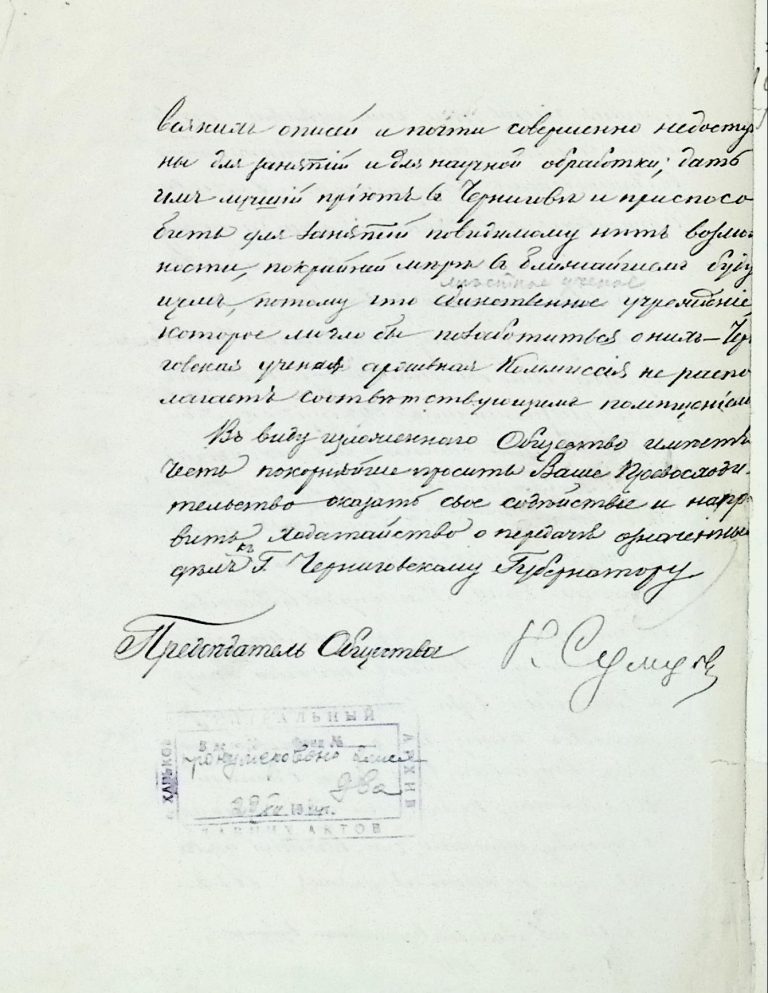 всякихъ описей и почти совершенно недоступ
ны для занятій и для научной обработки; дать
имъ лучшій пріютъ въ Черниговѣ и приспосо
бить для занятій повидимому нѣтъ возмож
ности, по крайней мѣрѣ въ ближайшемъ буду
мѣстное ученое
щемъ, потому что единственное учрежденіе
которое могло бы позаботиться о нихъ — Черни
говская ученая архивная Коммиссія не распо
лагаетъ соотвѣтствующимъ помѣщеніемъ
Въ виду изложеннаго Общество имѣетъ
честь покорнѣйше просить Ваше Превосходи-
тельство оказать свое содѣйствіе и напра
вить ходатайство о передачѣ означенныхъ
дѣлъ къ Г. Черниговскому Губернатору
Предсѣдатель Общества Н. Сумцов
ЦЕНТРАЛЬНЫЙ
АРХИВ
ХАРЬКОВ
В деле № Фонд №
пронумеровано
два
22 19 г.
АКТОВ